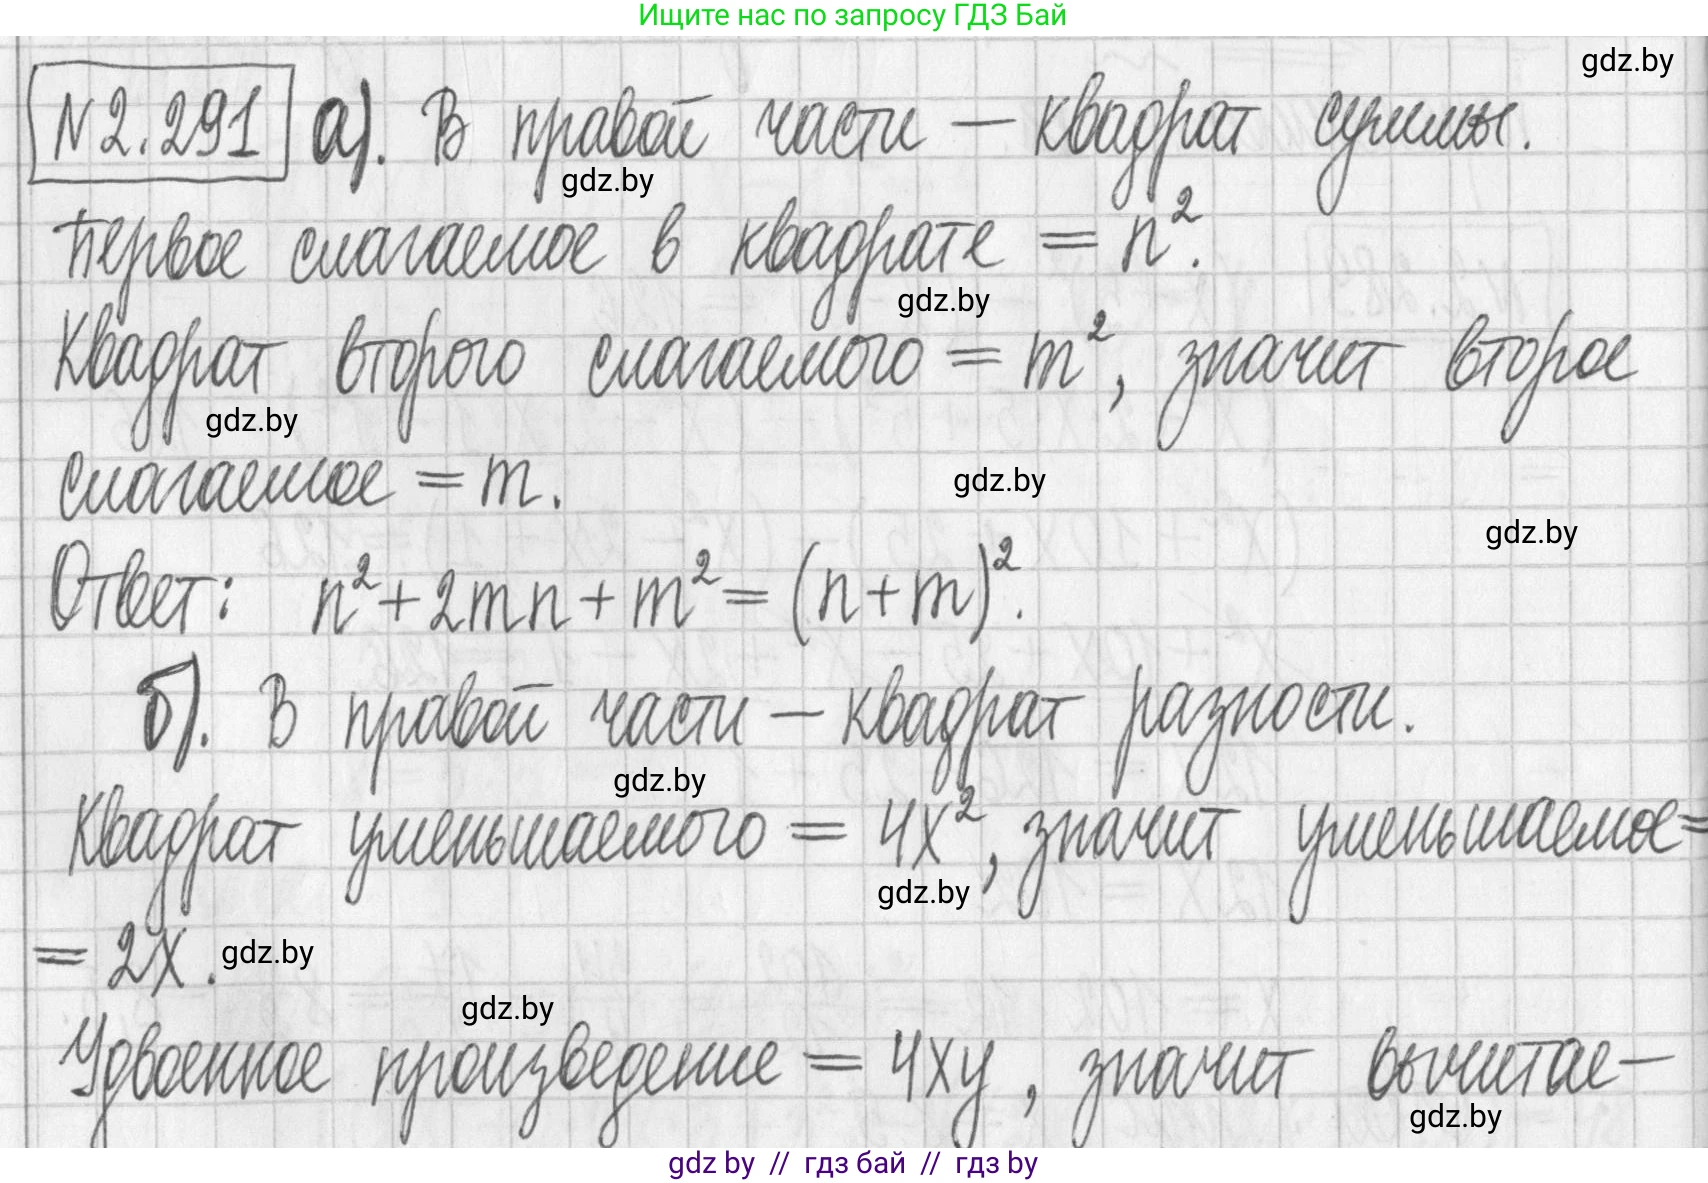 Ищите нас по запросу ГДЗ Бай
gdz.by
N 2.291 а). В правой части – квадрат суммы.
gdz.by
Первое слагаемое в квадрате = n².
gdz.by
Квадрат второго слагаемого = m², значит второе
gdz.by
слагаемое = m.
gdz.by
gdz.by
Ответ: n² + 2mn + m² = (n + m)².
б). В правой части – квадрат разности.
gdz.by
Квадрат уменьшаемого = 4x², значит уменьшаемое =
gdz.by
= 2x.
gdz.by
gdz.by
Удвоенное произведение = 4xy, значит вычитае–
gdz.by
gdz by // гдз бай // гдз by